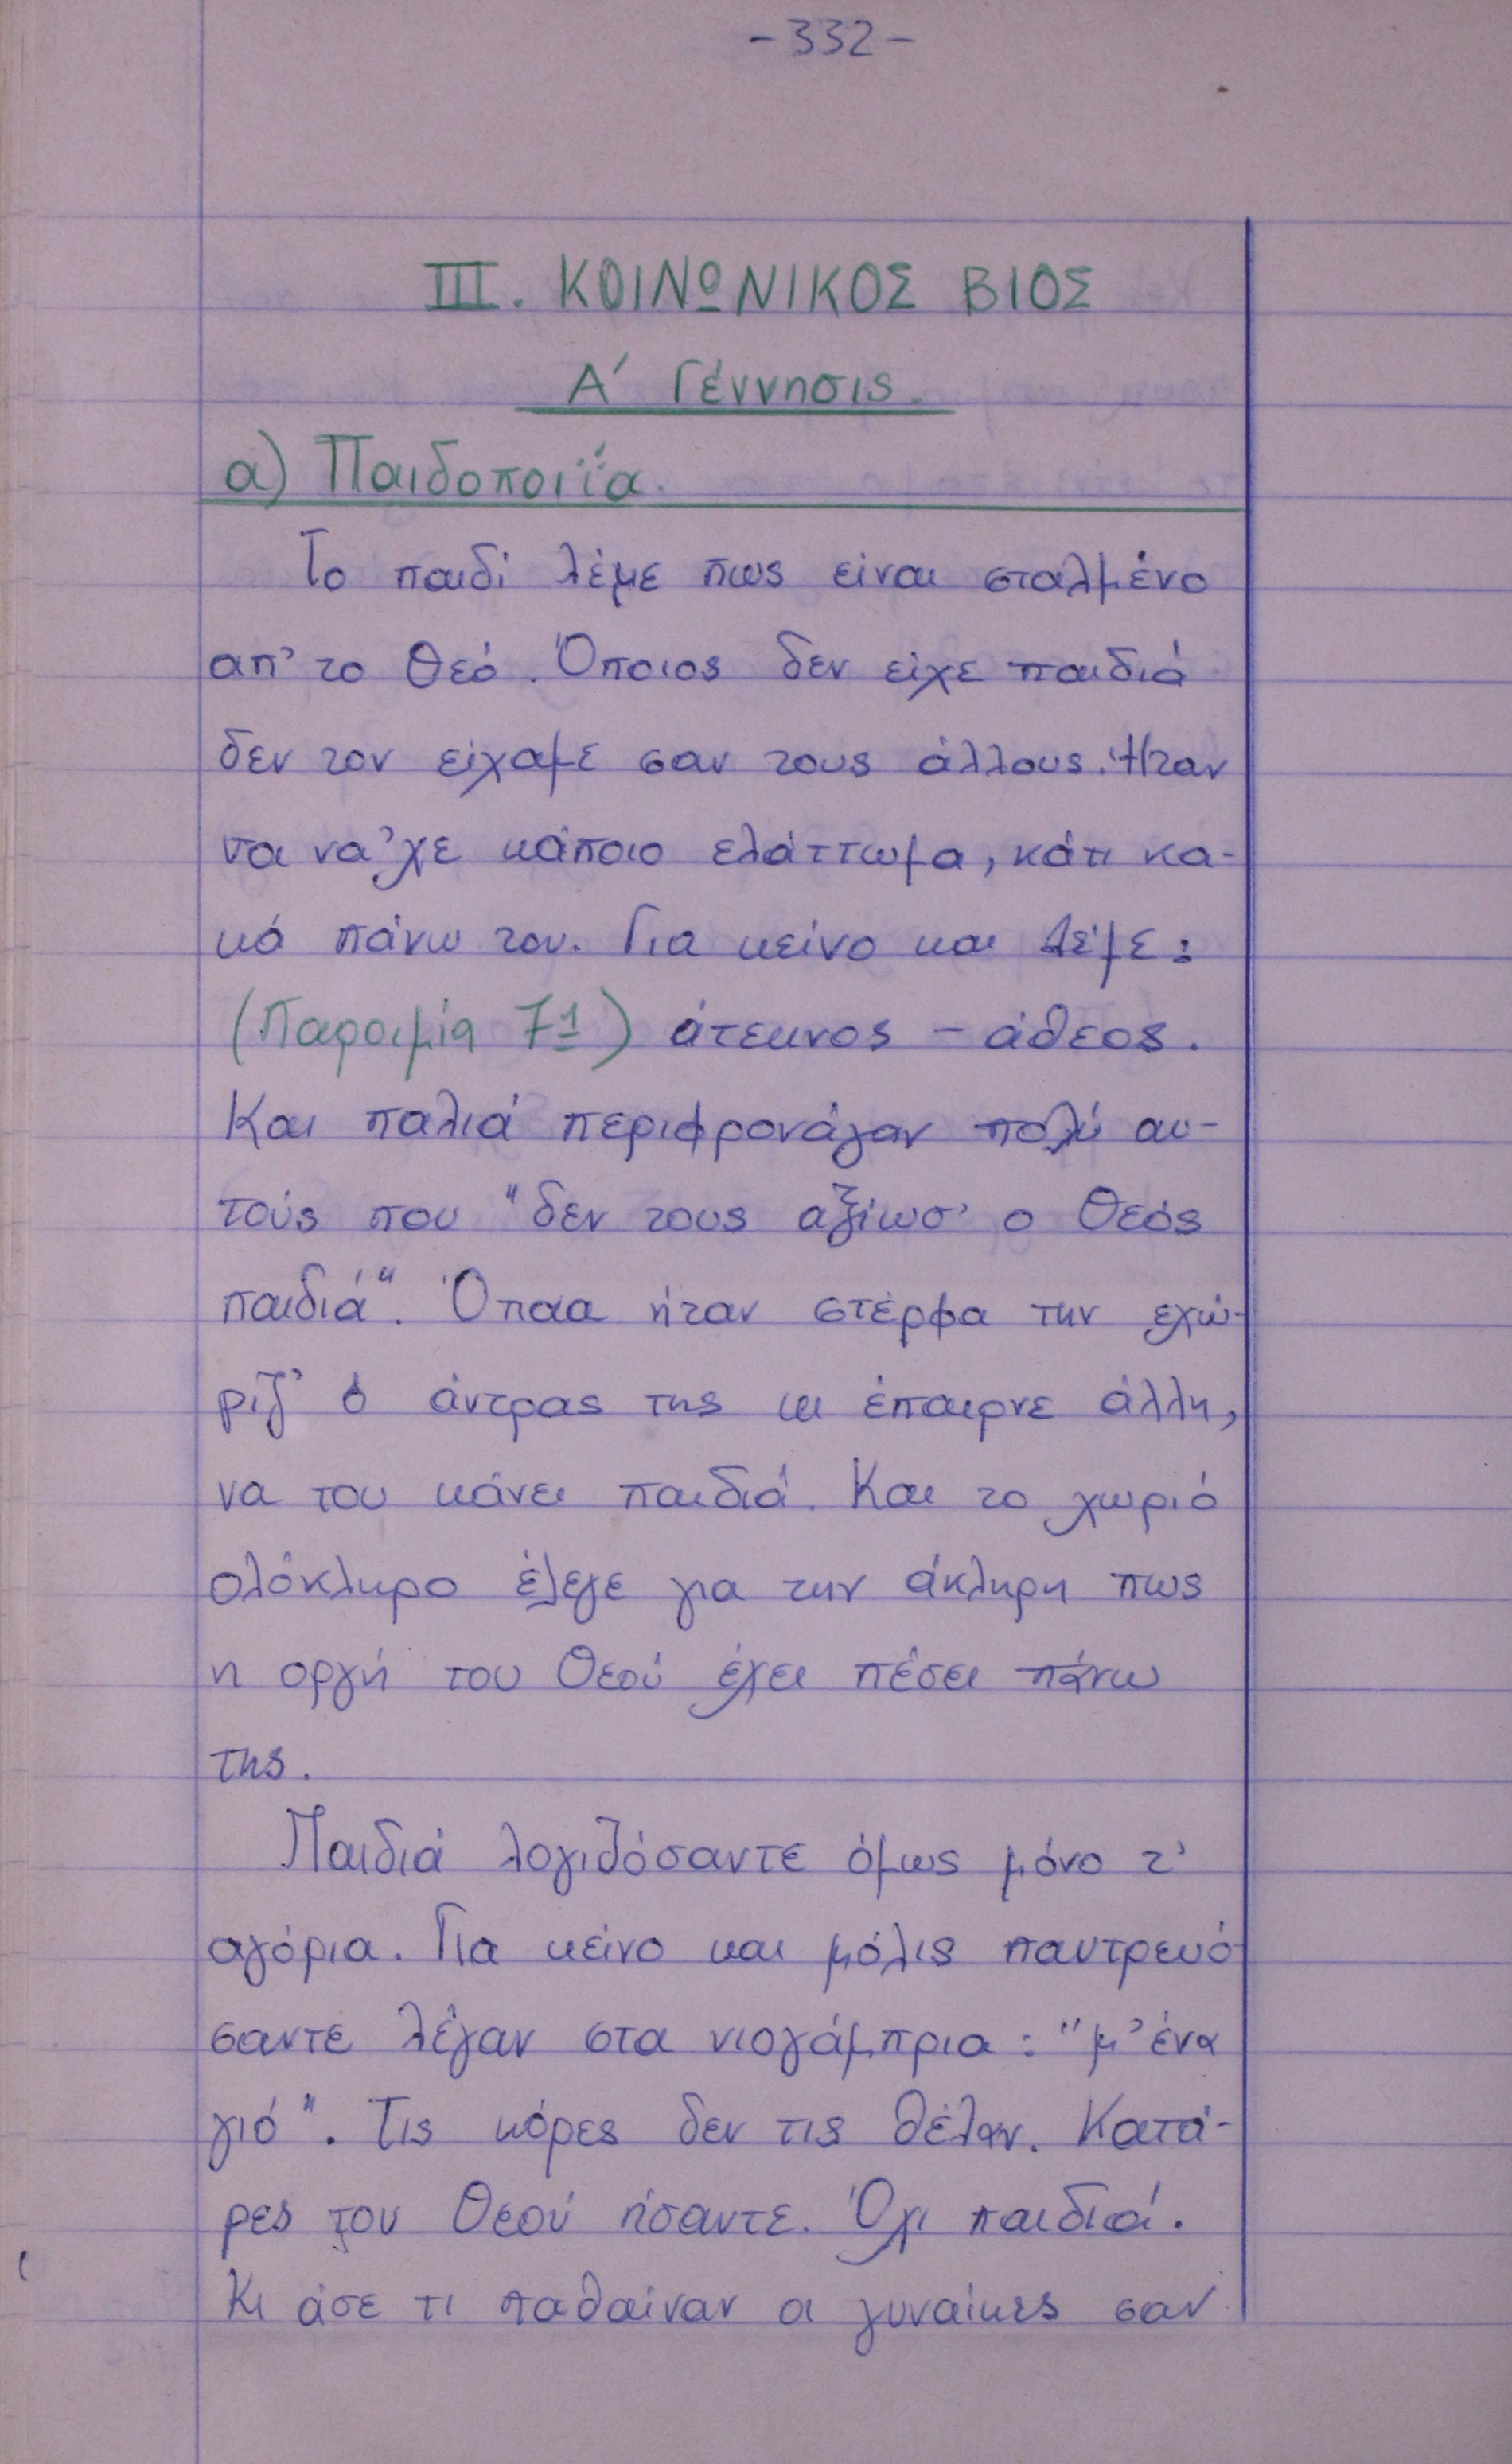 -332-
III. ΚΟΙΝΩΝΙΚΟΣ ΒΙΟΣ
Α΄ Γέννησις.
α) Παιδοποιΐα.
Το παιδί λέμε πως είναι σταλμένο
απ' το Θεό. Όποιος δεν είχε παιδιά
δεν τον είχαμε σαν τους άλλους. Ήταν
να να'χε κάποιο ελάττωμα, κάτι κα-
κό πάνω του. Για κείνο και λέμε:
(Παροιμία 71) άτεκνος - άθεος.
Και παλιά περιφρονάγαν πολύ αυ-
τούς που "δεν τους αξίωσ' ο Θεός
παιδιά". Όποια ήταν στέρφα την εχώ-
ριζ' ο άντρας της κι έπαιρνε άλλη,
να του κάνει παιδιά. Και το χωριό
ολόκληρο έλεγε για την άκληρη πως
η οργή του Θεού έχει πέσει πάνω
της.
Παιδιά λογιζόσαντε όμως μόνο τ'
αγόρια. Για κείνο και μόλις παντρευό-
σαντε λέγαν στα νιογάμπρια: "μ' ένα
γιό". Τις κόρες δεν τις θέλαν. Κατά-
ρες του Θεού ήσαντε. Όχι παιδιά.
Κι άσε τι παθαίναν οι γυναίκες σαν